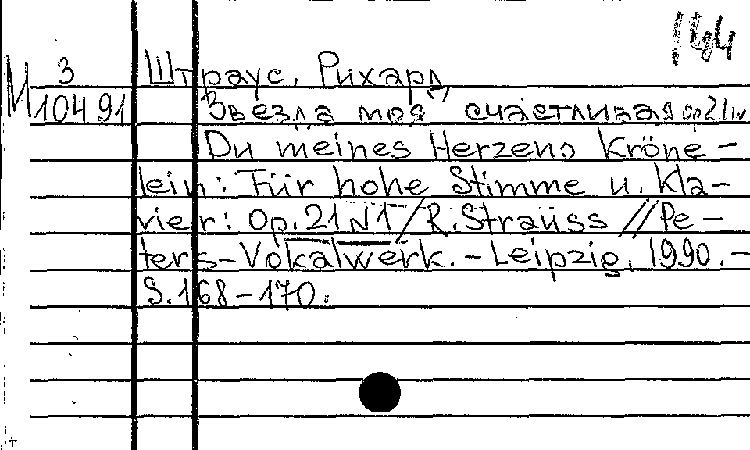 144
М 3
10491
Штраус, Рихард
Звезда моя счастливая op21
Du meines Herzens Kröne-
lein: Für hohe Stimme u. Kla-
vier: Op. 21 N1 / R. Strauss // Pe-
ters-Vokalwerk. - Leipzig, 1990. -
S. 168-170.